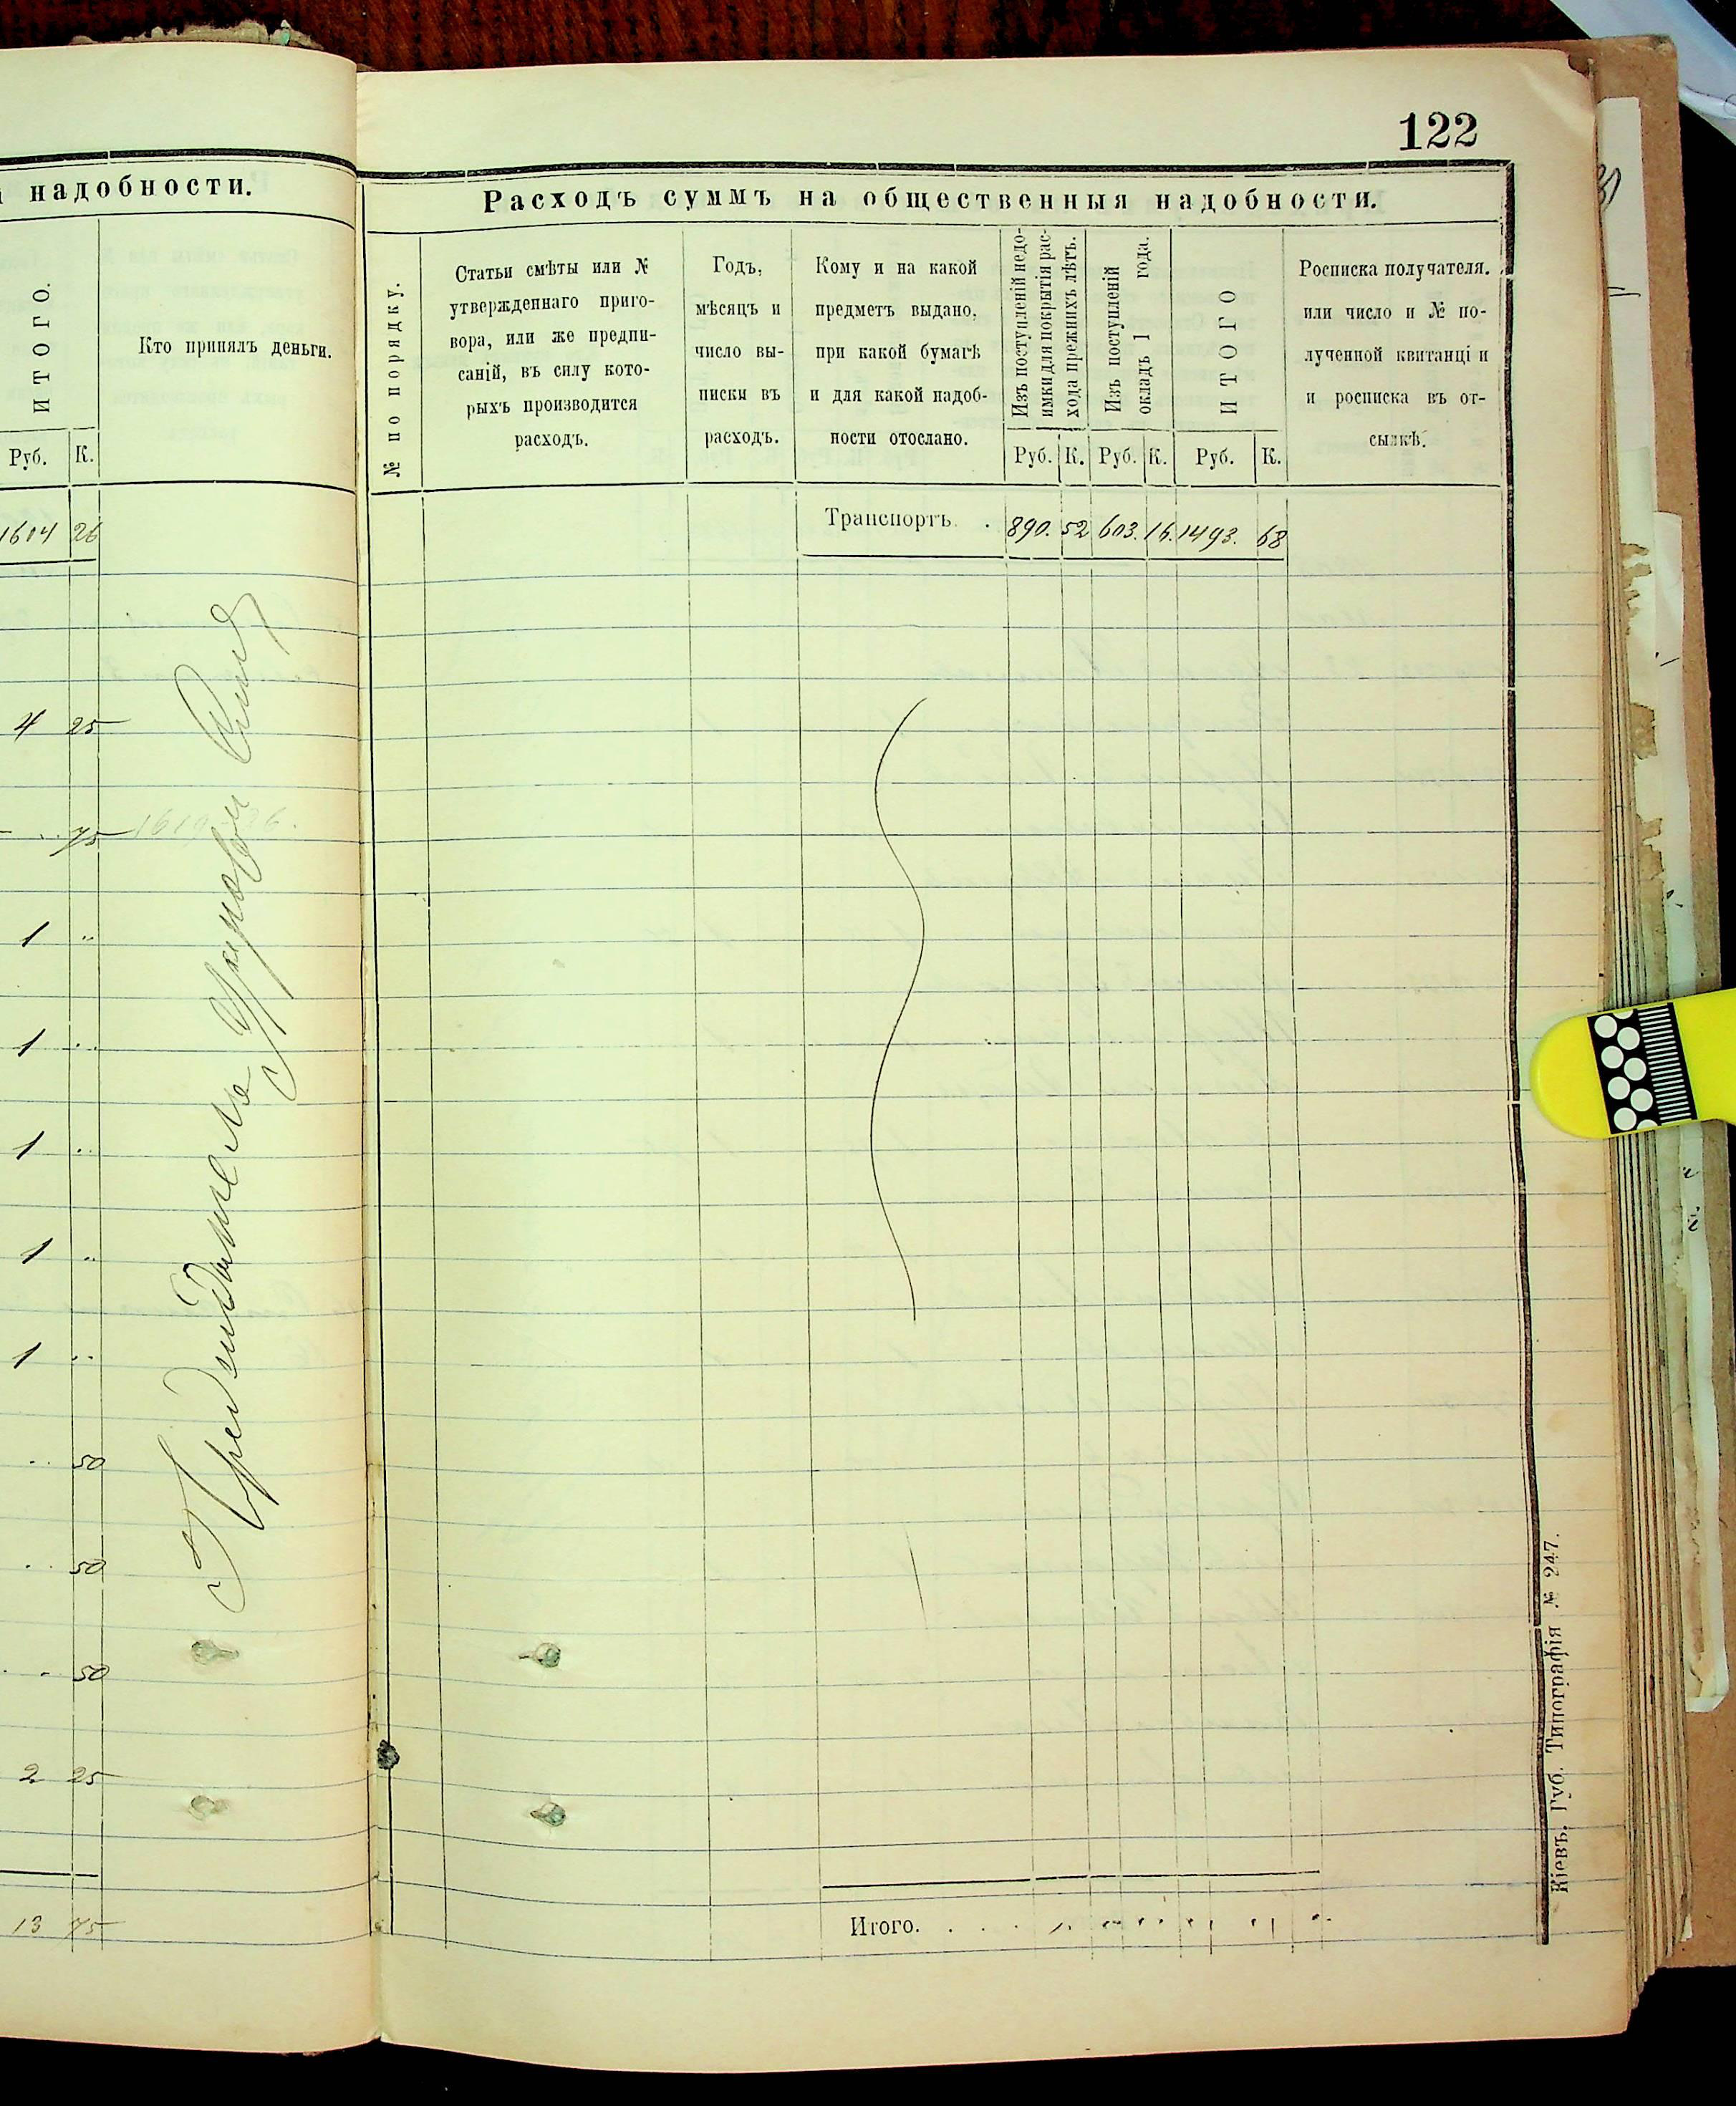 122
надобности.
ИТОГО.
Кто принялъ деньги.
Руб. К.
1604 26
4 25
75
1619 26.
1 ..
1 ..
1 ..
1 ..
1 ..
.. 50
.. 50
.. 50
2 25
13 75
Расходъ суммъ на общественныя надобности.
№ по порядку.
Статьи смѣты или №
утвержденнаго приго-
вора, или же предпи-
саній, въ силу кото-
рыхъ производится
расходъ.
Годъ,
мѣсяцъ и
число вы-
писки въ
расходъ.
Кому и на какой
предметъ выдано,
при какой бумагѣ
и для какой надоб-
ности отослано.
Изъ поступленій недо-
имки для покрытія рас-
хода прежнихъ лѣтъ.
Изъ поступленій
окладъ 1 года.
ИТОГО
Росписка получателя.
или число и № по-
лученной квитанціи
и росписка въ от-
сылкѣ.
Руб. К. Руб. К. Руб. К.
Транспортъ. . 890. 52 603. 16. 1493. 68
Итого. . . .
Кіевъ, Губ. Типографія № 247.